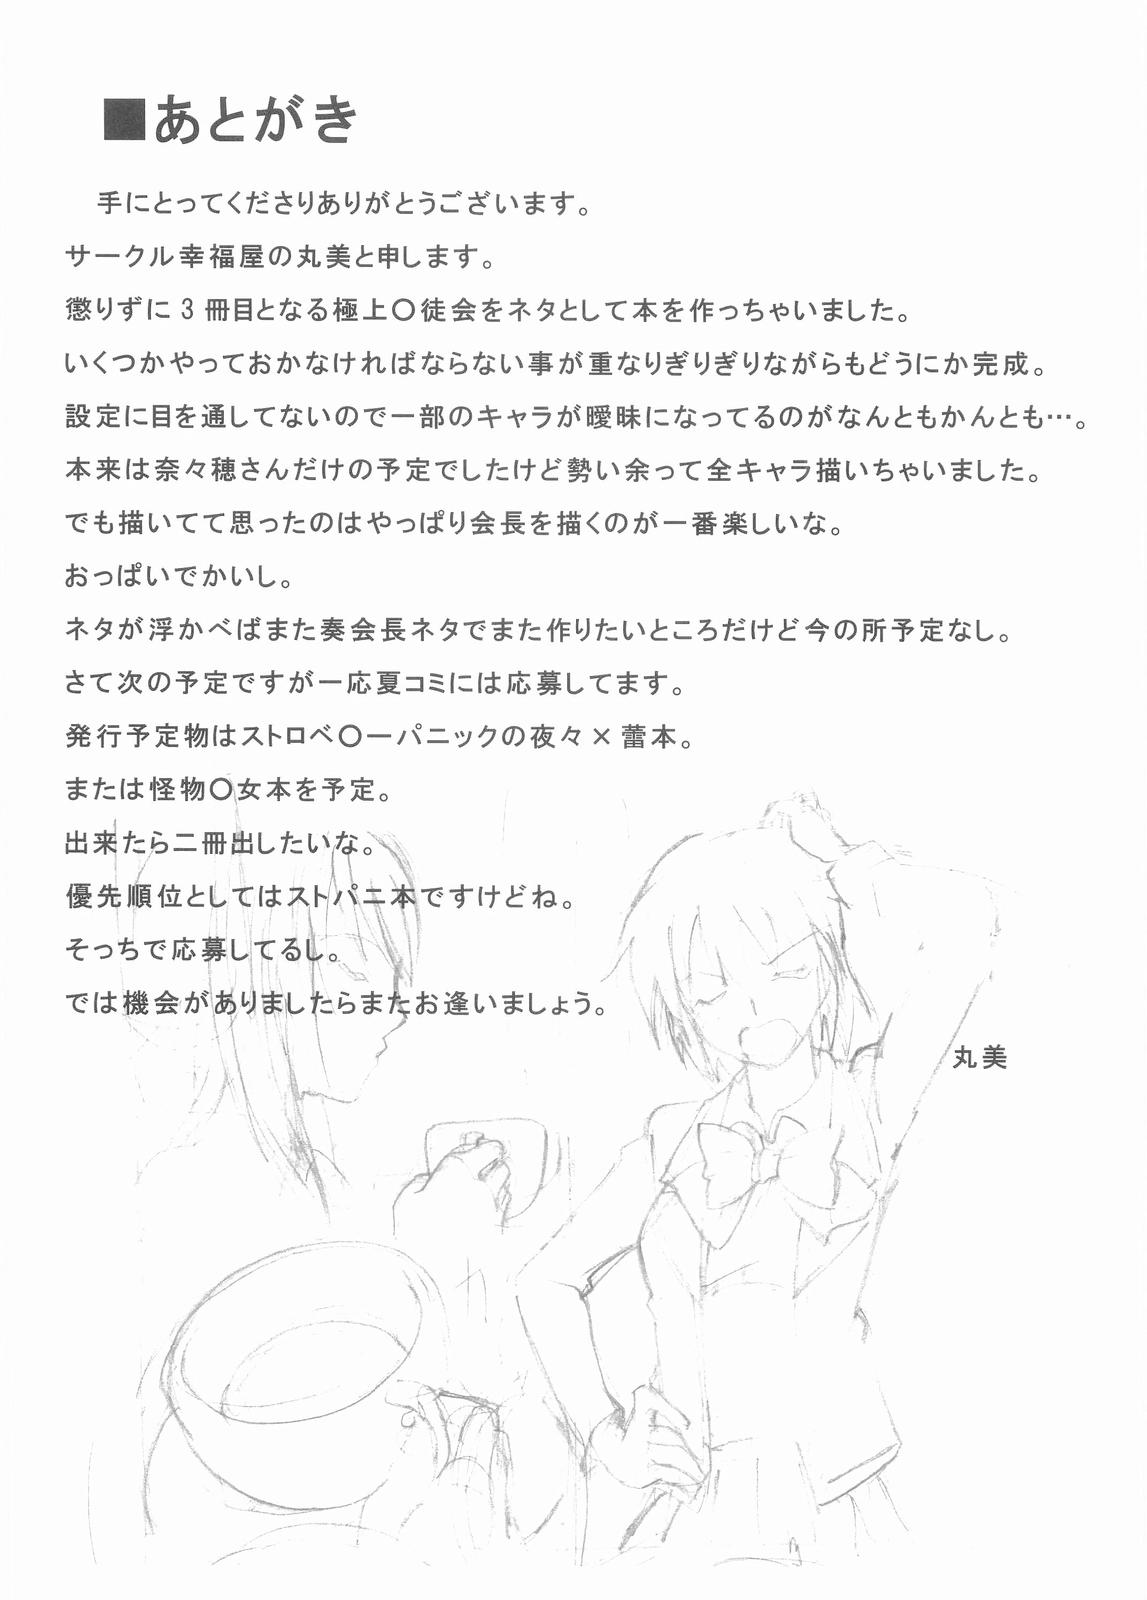 ■あとがき
手にとってくださりありがとうございます。
サークル幸福屋の丸美と申します。
懲りずに３冊目となる極上〇徒会をネタとして本を作っちゃいました。
いくつかやっておかなければならない事が重なりぎりぎりながらもどうにか完成。
設定に目を通してないので一部のキャラが曖昧になってるのがなんともかんとも…。
本来は奈々穂さんだけの予定でしたけど勢い余って全キャラ描いちゃいました。
でも描いてて思ったのはやっぱり会長を描くのが一番楽しいな。
おっぱいでかいし。
ネタが浮かべばまた奏会長ネタでまた作りたいところだけど今の所予定なし。
さて次の予定ですが一応夏コミには応募してます。
発行予定物はストロベ〇ーパニックの夜々×蕾本。
または怪物〇女本を予定。
出来たら二冊出したいな。
優先順位としてはストパニ本ですけどね。
そっちで応募してるし。
では機会がありましたらまたお逢いましょう。
丸美